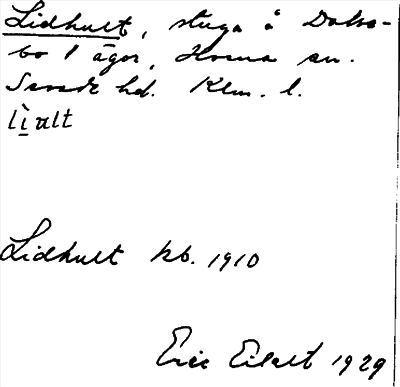 Lidhult, stuga å Dalsebo 1 ägor, Horna sn.
Sevede hd. Klm. l.
lìalt
Lidhult kb. 1910
Eric Eilert 1929